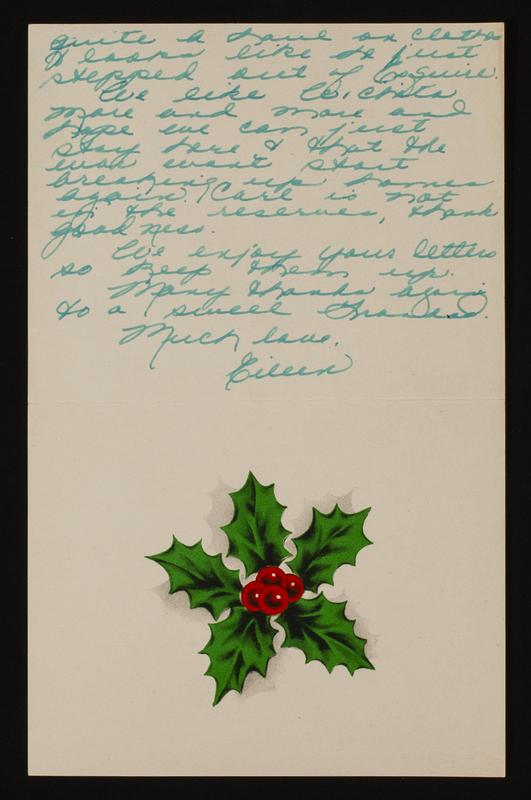 quite a       on clothes
& looks like he just
stepped out of Esquire.
We like Wichita
more and more and
hope we can just
stay here & that the
war wont start
breaking up homes
again. Carl is not
in the reserves, thank
goodness.
We enjoy your letters
so keep them up.
Many thanks again
to a sweet
Much love,
Eileen